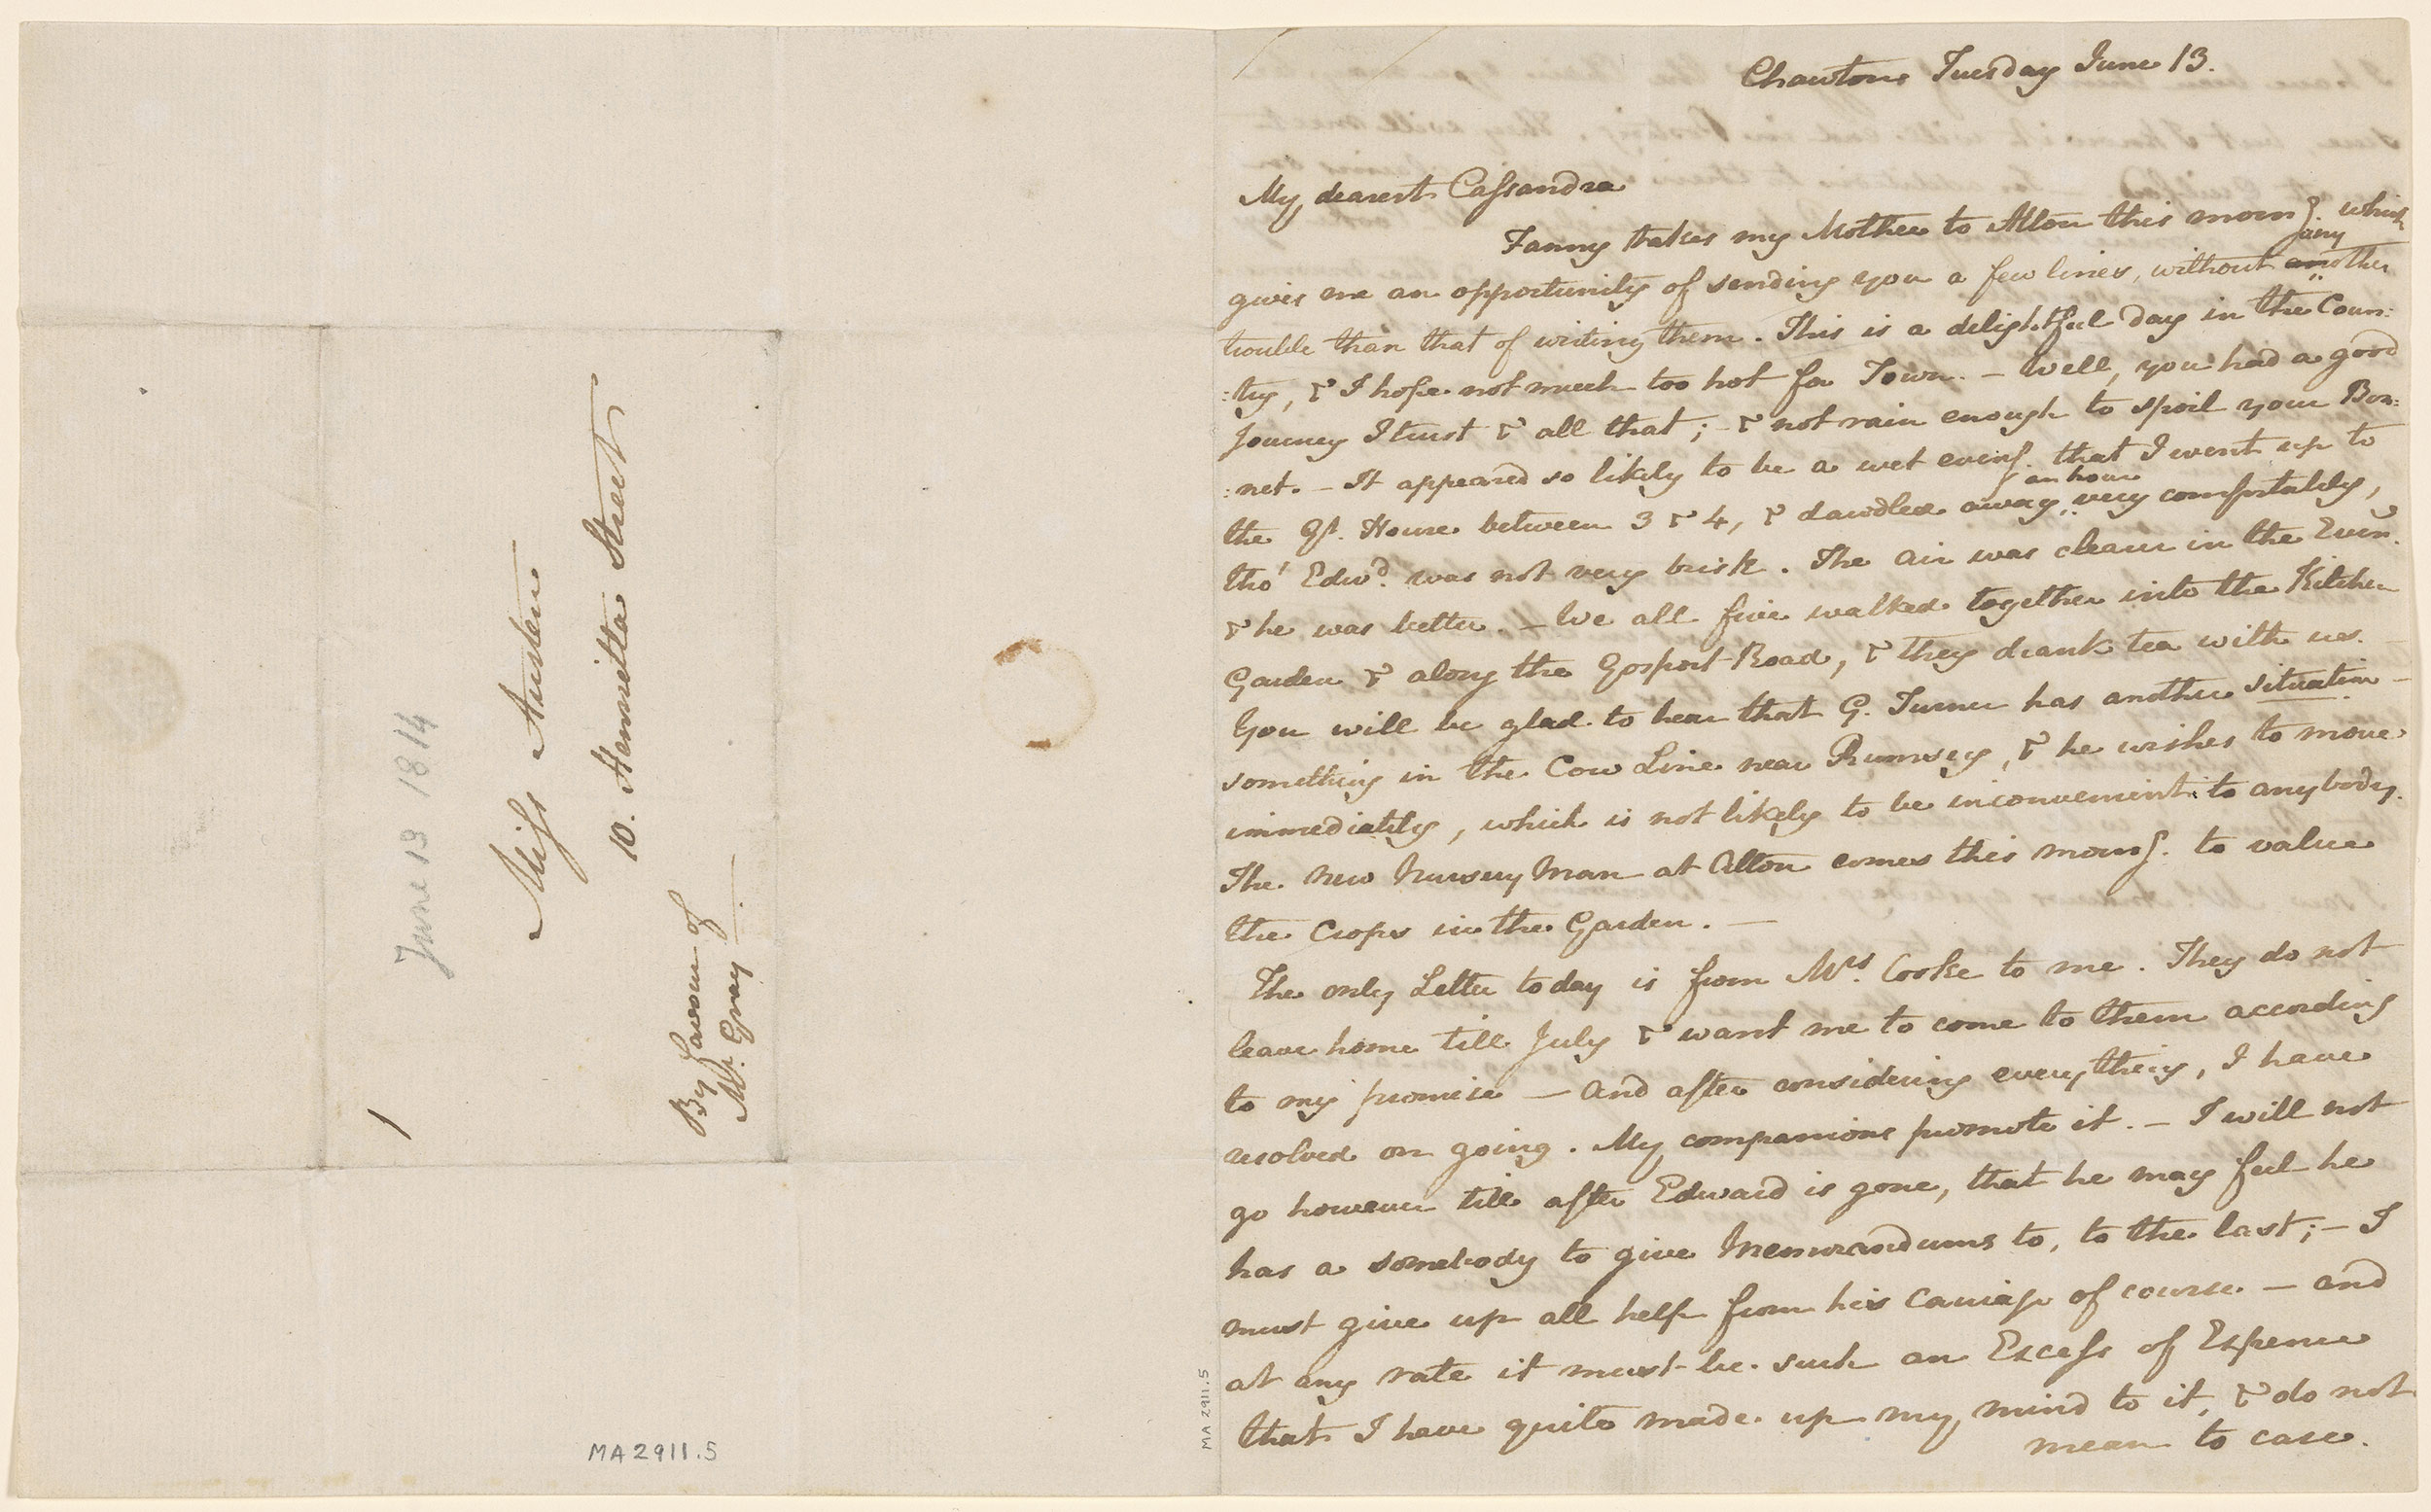 June 13 1814
Miss Austen
10. Henrietta Street
By favour of
Mr. Gray.
MA 2911.5
MA 2911.5
Chawton Tuesday June 13.
My dearest Cassandra
Fanny takes my Mother to Alton this morng. which
gives me an opportunity of sending you a few lines, without any other
trouble than that of writing them. This is a delightful day in the Coun:
:try, & I hope not much too hot for Town. — Well, you had a good
Journey I trust & all that; — & not rain enough to spoil your Bon:
:net. — It appeared so likely to be a wet eveng. that I went up to
the Gt. House between 3 & 4, & dawdled away an hour very comfortably,
tho' Edwd. was not very brisk. The air was clearer in the Eveng.
& he was better. — We all five walked together into the Kitchen
Garden & along the Gosport Road, & they drank tea with us. —
You will be glad to hear that G. Turner has another situation —
something in the Cow Line near Rumsey, & he wishes to move
immediately, which is not likely to be inconvenient to anybody.
The new Nursery Man at Alton comes this morng. to value
the Crops in the Garden. —
The only Letter to day is from Mrs. Cooke to me. They do not
leave home till July & want me to come to them according
to my promise — And after considering everything, I have
resolved on going. My companions promote it. — I will not
go however till after Edward is gone, that he may feel he
has a somebody to give Memorandums to, to the last; — I
must give up all help from his Carriage of course. — And
at any rate it must be such an Excess of Expence
that I have quite made up my mind to it, & do not
mean to care.